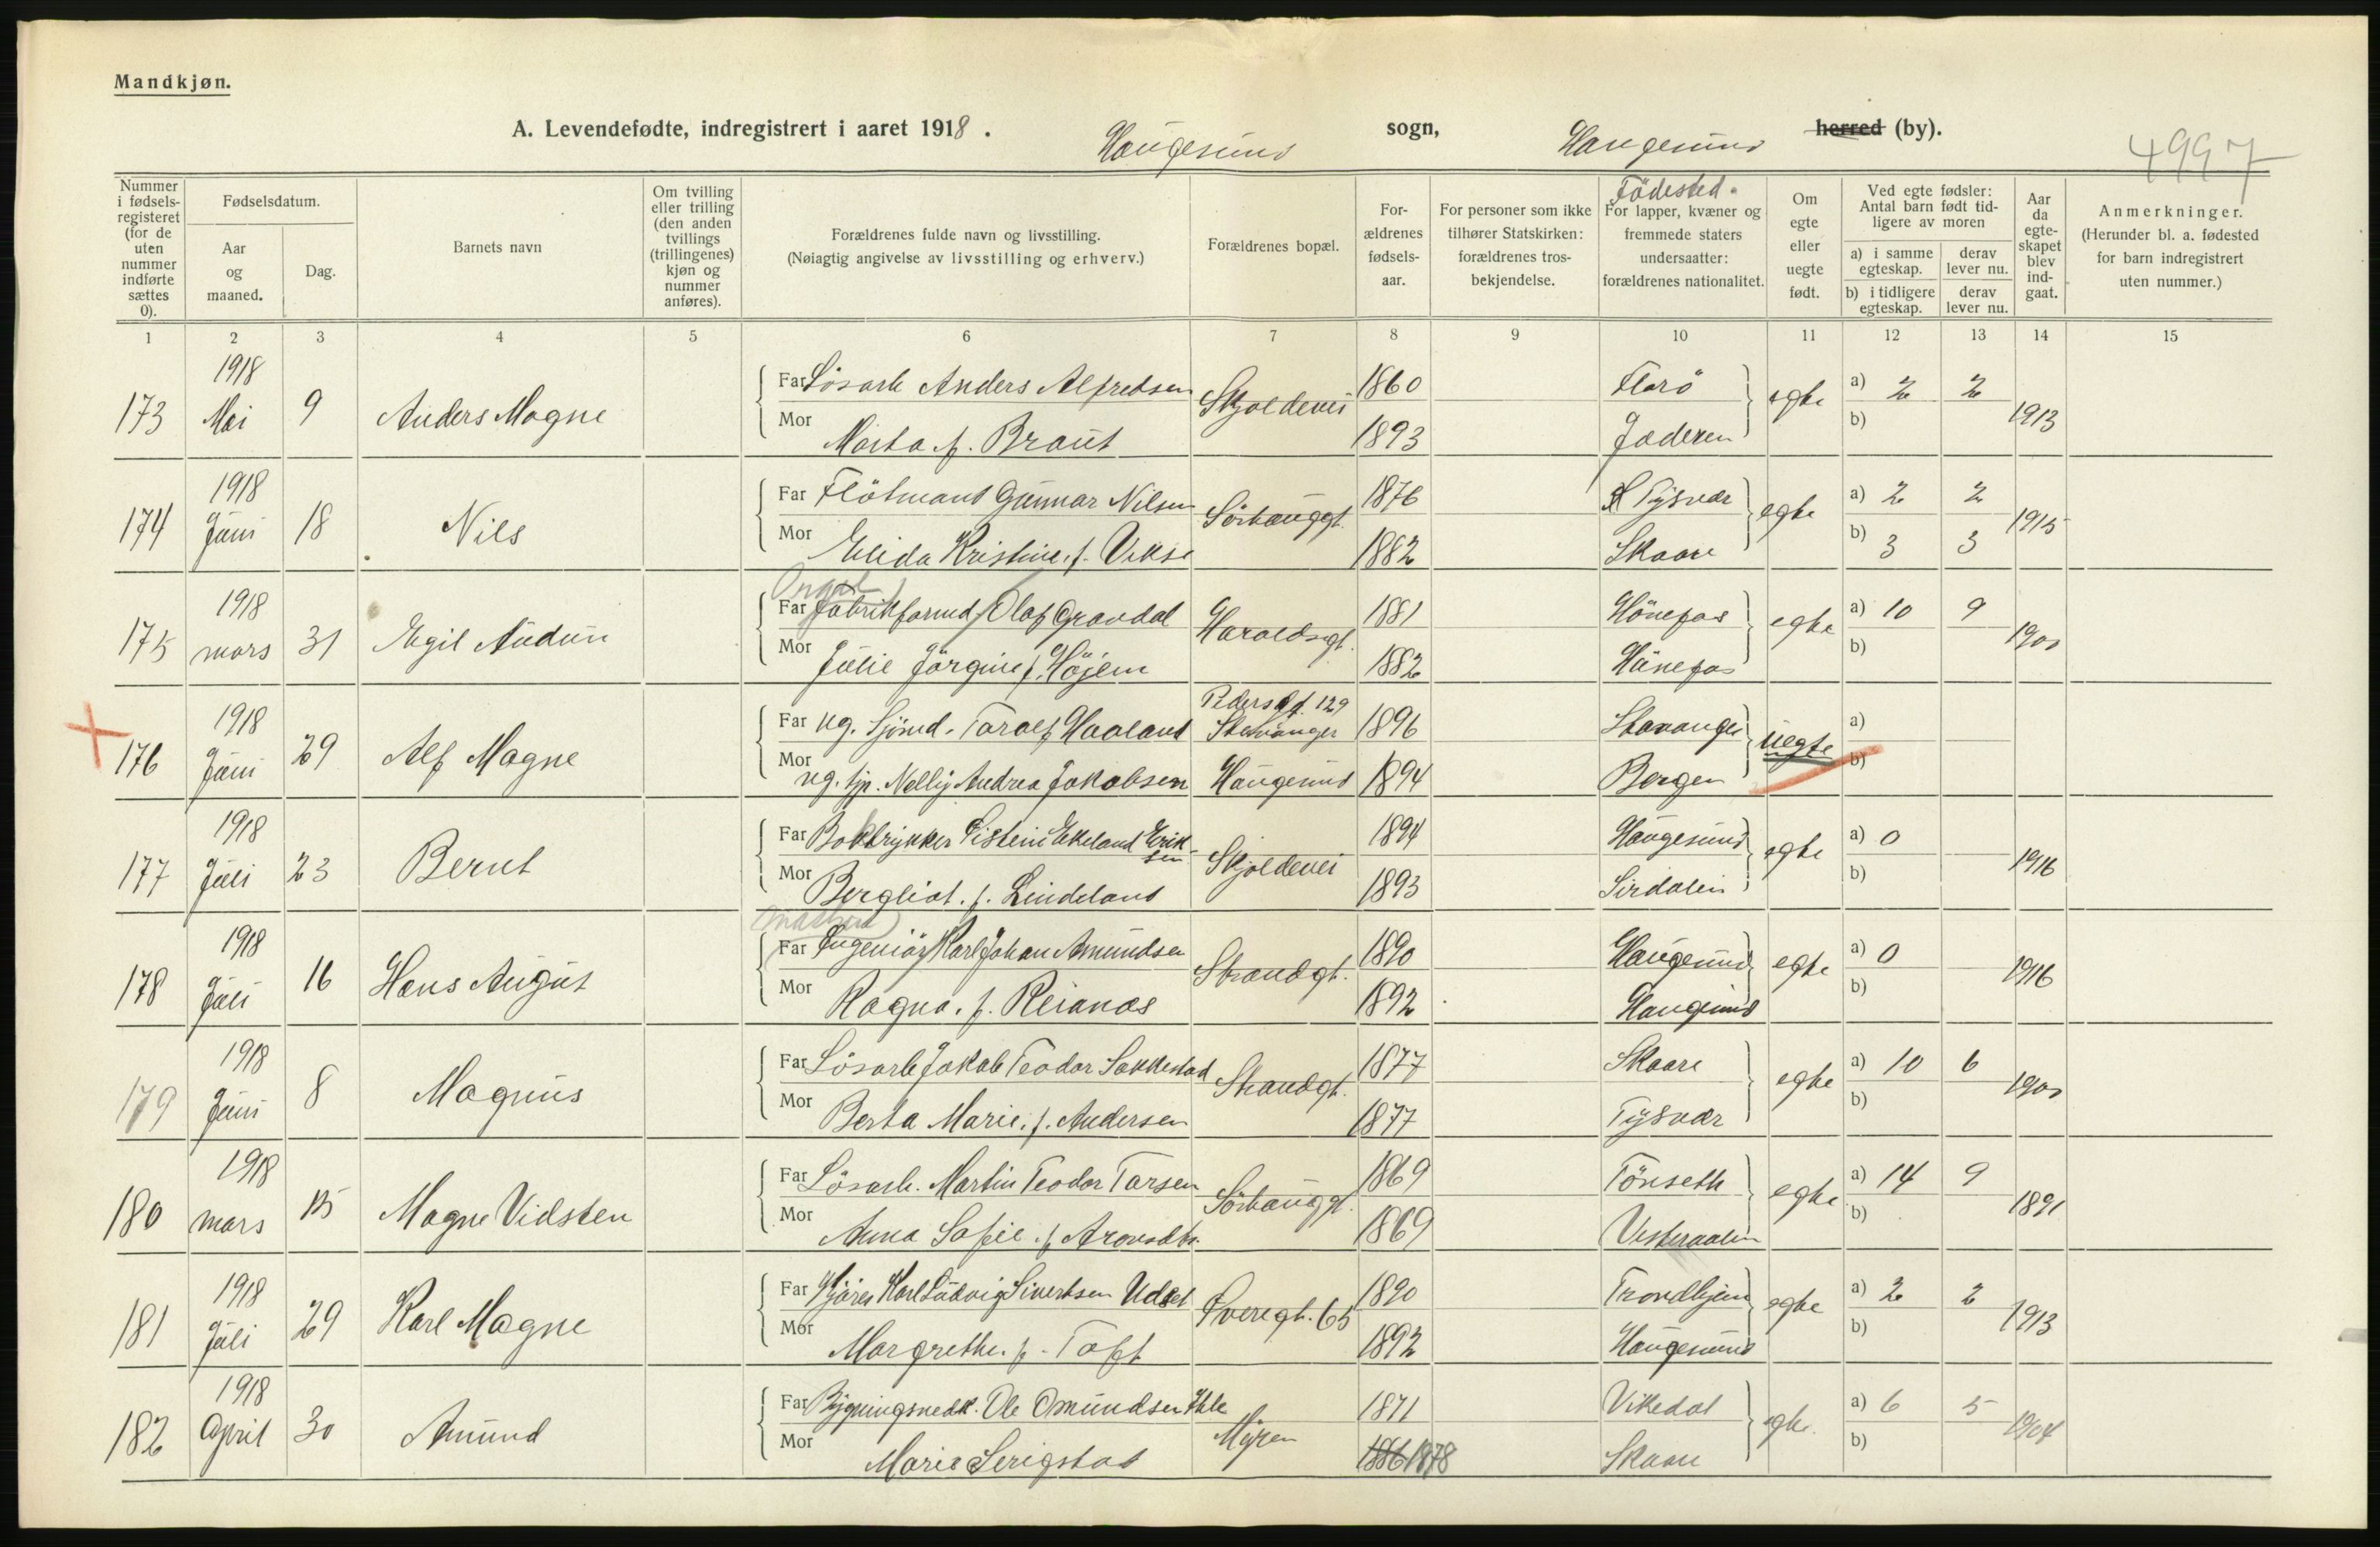 Mandkjøn.
A. Levendefødte, indregistrert i aaret 1918. Haugesund sogn, Haugesund herred (by).
4997
Nummer i fødsels-registeret (for de uten nummer indførte sættes 0).
Fødselsdatum.
Aar og maaned.
Dag.
Barnets navn
Om tvilling eller trilling (den anden tvillings (trillingenes) kjøn og nummer anføres).
Forældrenes fulde navn og livsstilling.
(Nøiagtig angivelse av livsstilling og erhverv.)
Forældrenes bopæl.
For-ældrenes fødsels-aar.
For personer som ikke tilhører Statskirken: forældrenes tros-bekjendelse.
Födested.
For lapper, kvæner og fremmede staters undersaatter: forældrenes nationalitet.
Om egte eller uegte født.
Ved egte fødsler: Antal barn født tid-ligere av moren
a) i samme egteskap.
derav lever nu.
b) i tidligere egteskap.
derav lever nu.
Aar da egte-skapet blev ind-gaat.
Anmerkninger.
(Herunder bl. a. fødested for barn indregistrert uten nummer.)
1 2 3 4 5 6 7 8 9 10 11 12 13 14 15
173 1918 Mai 9 Anders Magne Far Lösarb Anders Alfredsen Skjoldevei 1860 Florö egte a) 2 2 1913
Mor Marta f. Braut 1893 Jæderen b)
174 1918 Juni 18 Nils Far Flötmand Gunnar Nilsen Sörhauggt. 1876 Tysvær egte a) 2 2 1915
Mor Elida Kristine f. Vikse 1882 Skaare b) 3 3
175 1918 mars 31 Egil Audun Far Fabrikformd Olaf Gravdal Haraldsgt. 1881 Hönefos egte a) 10 9 1900
Mor Julie Jörgine f. Höjem 1882 Hönefos b)
176 1918 Juni 29 Alf Magne Far ug. Sjömd. Toralf Haaland Pedersgt. 129 Stavanger 1896 Stavanger uegte a)
Mor ug. tjp. Nelly Andrea Jakobsen Haugesund 1894 Bergen b)
177 1918 Juli 23 Bernt Far Boktrykker Eistein Ekeland Eriksen Skjoldevei 1894 Haugesund egte a) 0 1916
Mor Bergliot f. Lindeland 1893 Sirdalen b)
178 1918 Juli 16 Hans August Far Ingeniör Karl Johan Amundsen Strandgt. 1890 Haugesund egte a) 0 1916
Mor Ragna f. Reianas 1892 Haugesund b)
179 1918 Juni 8 Magnus Far Lösarb Jakob Teodor Sakkestad Strandgt. 1877 Skaare egte a) 10 6 1900
Mor Berta Marie f. Andersen 1877 Tysvær b)
180 1918 mars 15 Magne Vidsten Far Lösarb. Martin Teodor Tarsen Sörhauggt. 1869 Tönseth egte a) 14 9 1891
Mor Anna Sofie f. 1869 Vesteraalen b)
181 1918 Juli 29 Karl Magne Far Karl Ludvig Sivertsen Udset Sveregt. 65 1890 Trondhjem egte a) 2 2 1913
Mor Margrethe f. Toft 1892 Haugesund b)
182 1918 April 30 Amund Far Bygningssnedk. Ole Omundsen Myren 1871 Vikedal egte. a) 6 5 1904
Mor Marie Serigstad 1886 1878 Skaare b)